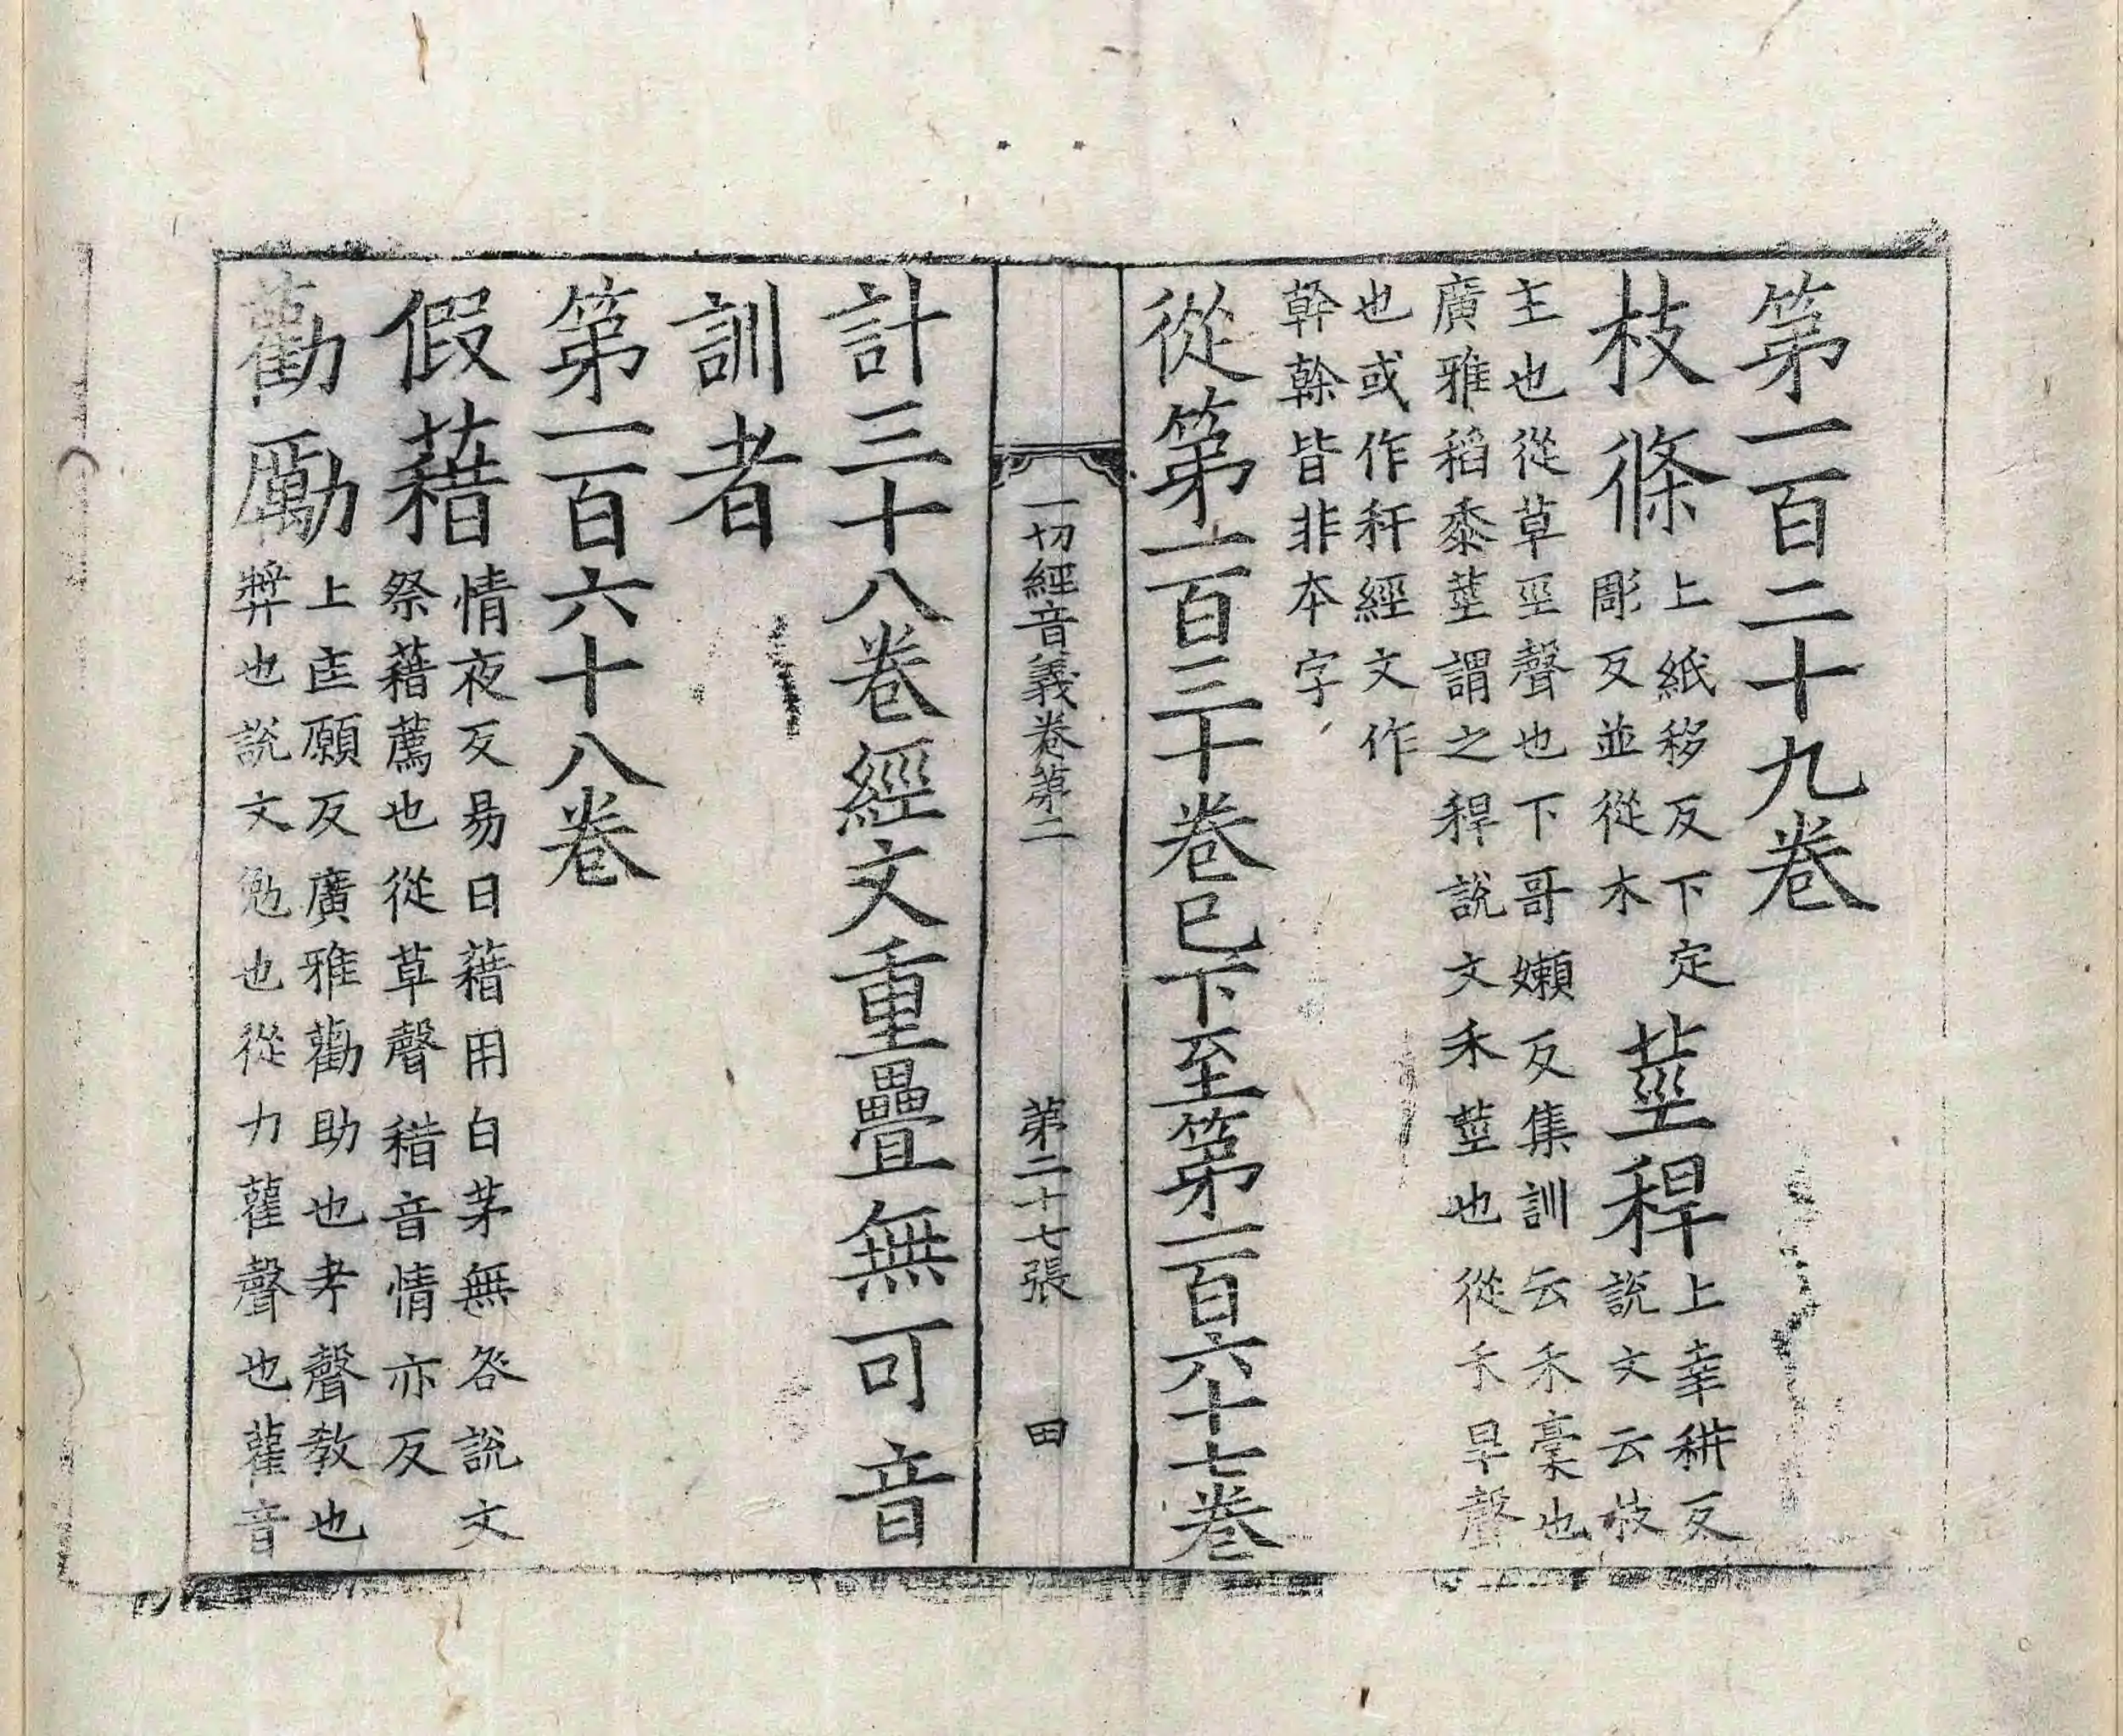 第一百二十九卷
枝條
上紙移反下定
彫反並從木
莖稈
上幸耕反
說文云枝
主也從草巠聲也下哥嬾反集訓云禾稾也
廣雅稻黍莖謂之稈說文禾莖也從禾旱聲
也或作秆經文作
幹榦皆非本字
從第一百三十卷已下至第一百六十七卷
一切經音義卷第二 第二十七張 田
計三十八卷經文重疊無可音
訓者
第一百六十八卷
假藉
情夜反易曰藉用白茅無咎說文
祭藉薦也從草聲耤音情亦反
勸勵
上匡願反廣雅勸助也孝聲教也
獎也說文勉也從力雚聲也雚音